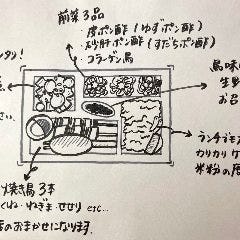 前菜3品
・皮ポン酢(ゆずポン酢)
・砂肝ポン酢(すだちポン酢)
・コラーゲン鳥
鳥味
生野
お召
ランチでモ
カリカリ
米粉の唐
焼き鳥3本
くね・ねぎま・せせり etc...
店のおまかせになります。
さい。